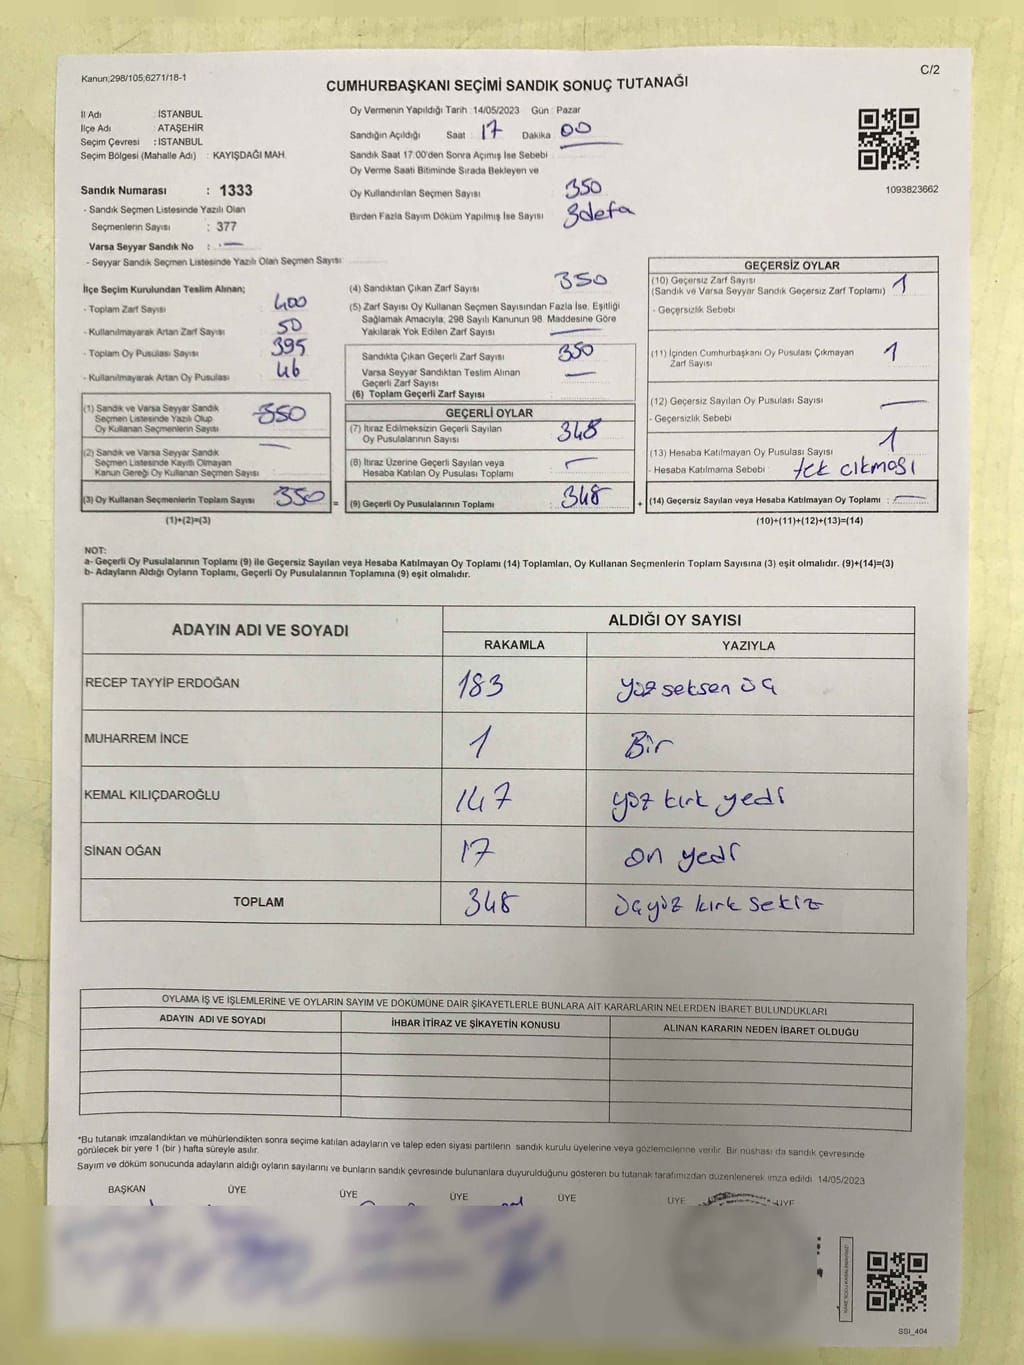 Kanun;298/105;6271/18-1
C/2
CUMHURBAŞKANI SEÇİMİ SANDIK SONUÇ TUTANAĞI
İl Adı : İSTANBUL
İlçe Adı : ATAŞEHİR
Seçim Çevresi : İSTANBUL
Seçim Bölgesi (Mahalle Adı) : KAYIŞDAĞI MAH.
Sandık Numarası : 1333
- Sandık Seçmen Listesinde Yazılı Olan
Seçmenlerin Sayısı : 377
Varsa Seyyar Sandık No : —
- Seyyar Sandık Seçmen Listesinde Yazılı Olan Seçmen Sayısı:
Oy Vermenin Yapıldığı Tarih : 14/05/2023 Gün : Pazar
Sandığın Açıldığı Saat : 17 Dakika : 00
Sandık Saat 17:00'den Sonra Açımış İse Sebebi
Oy Verme Saati Bitiminde Sırada Bekleyen ve
Oy Kullandırılan Seçmen Sayısı 350
Birden Fazla Sayım Döküm Yapılmış İse Sayısı 3 defa
1093823662
İlçe Seçim Kurulundan Teslim Alınan;
- Toplam Zarf Sayısı : 400
- Kullanılmayarak Artan Zarf Sayısı : 50
- Toplam Oy Pusulası Sayısı : 395
- Kullanılmayarak Artan Oy Pusulası : 46
(1) Sandık ve Varsa Seyyar Sandık
Seçmen Listesinde Yazılı Olup
Oy Kullanan Seçmenlerin Sayısı 350
(2) Sandık ve Varsa Seyyar Sandık
Seçmen Listesinde Kayıtlı Olmayan
Kanun Gereği Oy Kullanan Seçmen Sayısı : —
(3) Oy Kullanan Seçmenlerin Toplam Sayısı 350 =
(1)+(2)=(3)
(4) Sandıktan Çıkan Zarf Sayısı 350
(5) Zarf Sayısı Oy Kullanan Seçmen Sayısından Fazla İse, Eşitliği
Sağlamak Amacıyla, 298 Sayılı Kanunun 98. Maddesine Göre
Yakılarak Yok Edilen Zarf Sayısı —
Sandıkta Çıkan Geçerli Zarf Sayısı 350
Varsa Seyyar Sandıktan Teslim Alınan
Geçerli Zarf Sayısı —
(6) Toplam Geçerli Zarf Sayısı :
GEÇERLİ OYLAR
(7) İtiraz Edilmeksizin Geçerli Sayılan
Oy Pusulalarının Sayısı 348
(8) İtiraz Üzerine Geçerli Sayılan veya
Hesaba Katılan Oy Pusulası Toplamı —
(9) Geçerli Oy Pusulalarının Toplamı 348 +
GEÇERSİZ OYLAR
(10) Geçersiz Zarf Sayısı 1
(Sandık ve Varsa Seyyar Sandık Geçersiz Zarf Toplamı)
- Geçersizlik Sebebi
(11) İçinden Cumhurbaşkanı Oy Pusulası Çıkmayan 1
Zarf Sayısı
(12) Geçersiz Sayılan Oy Pusulası Sayısı —
- Geçersizlik Sebebi
(13) Hesaba Katılmayan Oy Pusulası Sayısı 1
- Hesaba Katılmama Sebebi : tek cıkması
(14) Geçersiz Sayılan veya Hesaba Katılmayan Oy Toplamı : —
(10)+(11)+(12)+(13)=(14)
NOT:
a- Geçerli Oy Pusulalarının Toplamı (9) ile Geçersiz Sayılan veya Hesaba Katılmayan Oy Toplamı (14) Toplamları, Oy Kullanan Seçmenlerin Toplam Sayısına (3) eşit olmalıdır. (9)+(14)=(3)
b- Adayların Aldığı Oyların Toplamı, Geçerli Oy Pusulalarının Toplamına (9) eşit olmalıdır.
ADAYIN ADI VE SOYADI
ALDIĞI OY SAYISI
RAKAMLA YAZIYLA
RECEP TAYYİP ERDOĞAN 183 yüz seksen üç
MUHARREM İNCE 1 Bir
KEMAL KILIÇDAROĞLU 147 yüz kırk yedi
SİNAN OĞAN 17 on yedi
TOPLAM 348 üçyüz kırk sekiz
OYLAMA İŞ VE İŞLEMLERİNE VE OYLARIN SAYIM VE DÖKÜMÜNE DAİR ŞİKAYETLERLE BUNLARA AİT KARARLARIN NELERDEN İBARET BULUNDUKLARI
ADAYIN ADI VE SOYADI İHBAR İTİRAZ VE ŞİKAYETİN KONUSU ALINAN KARARIN NEDEN İBARET OLDUĞU
*Bu tutanak imzalandıktan ve mühürlendikten sonra seçime katılan adayların ve talep eden siyasi partilerin sandık kurulu üyelerine veya gözlemcilerine verilir. Bir nüshası da sandık çevresinde
görülecek bir yere 1 (bir) hafta süreyle asılır.
Sayım ve döküm sonucunda adayların aldığı oyların sayılarını ve bunların sandık çevresinde bulunanlara duyurulduğunu gösteren bu tutanak tarafımızdan düzenlenerek imza edildi. 14/05/2023
BAŞKAN ÜYE ÜYE ÜYE ÜYE ÜYE ÜYE
SSI_404